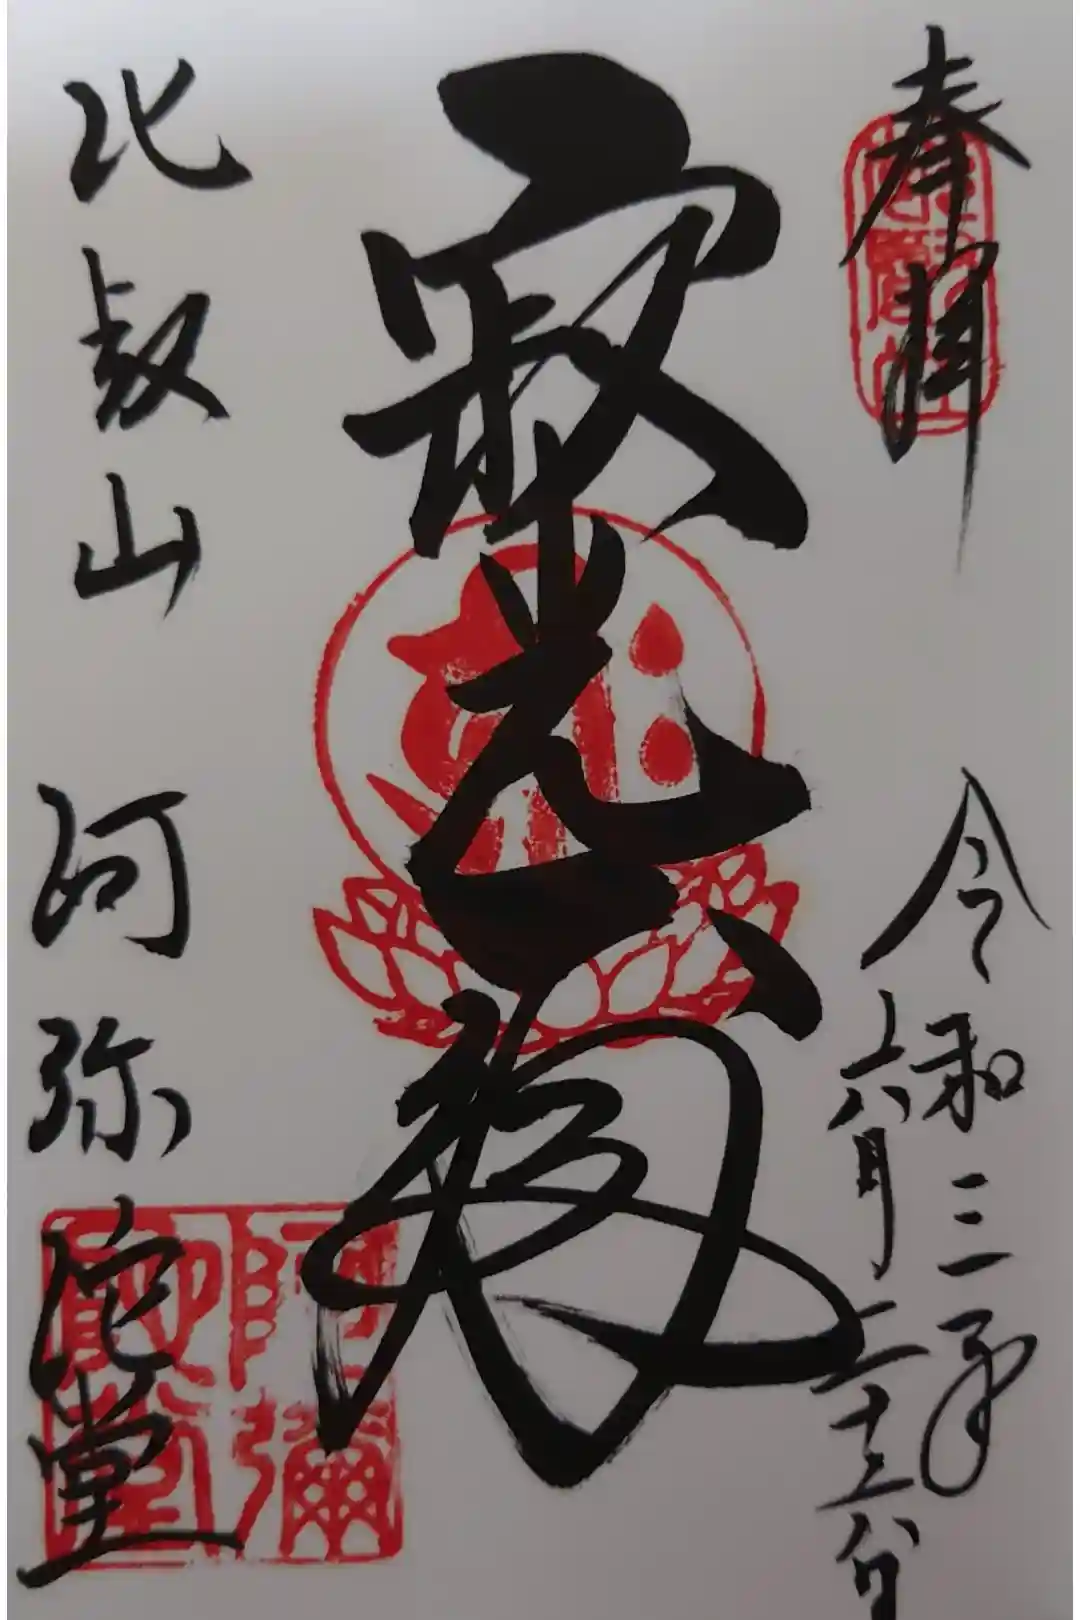 奉拝
令和三年
六月二十三日
寂光殿
比叡山 阿弥陀堂